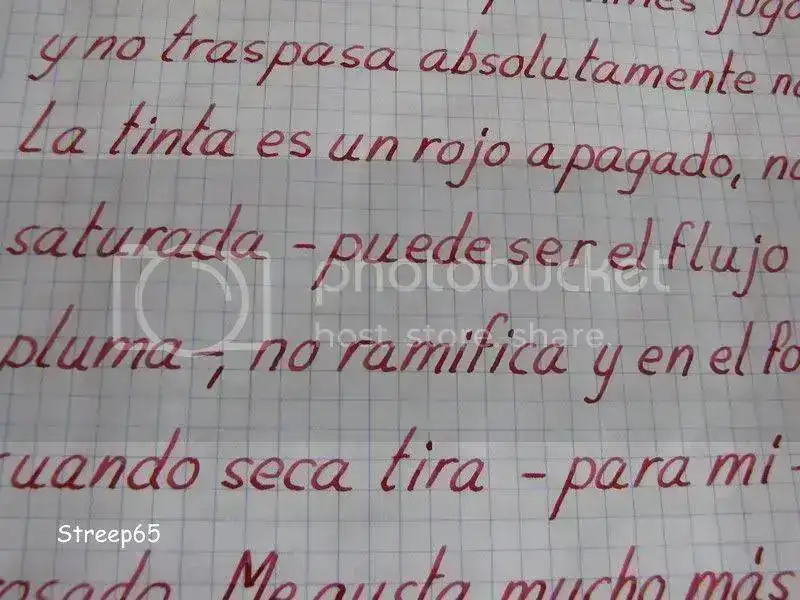 y no traspasa absolutamente
La tinta es un rojo apagado, no
saturada - puede ser el flujo
pluma -, no ramifica y en el
cuando seca tira - para mi -
Me gusta mucho más
photobucket
host. store. share.
Streep65